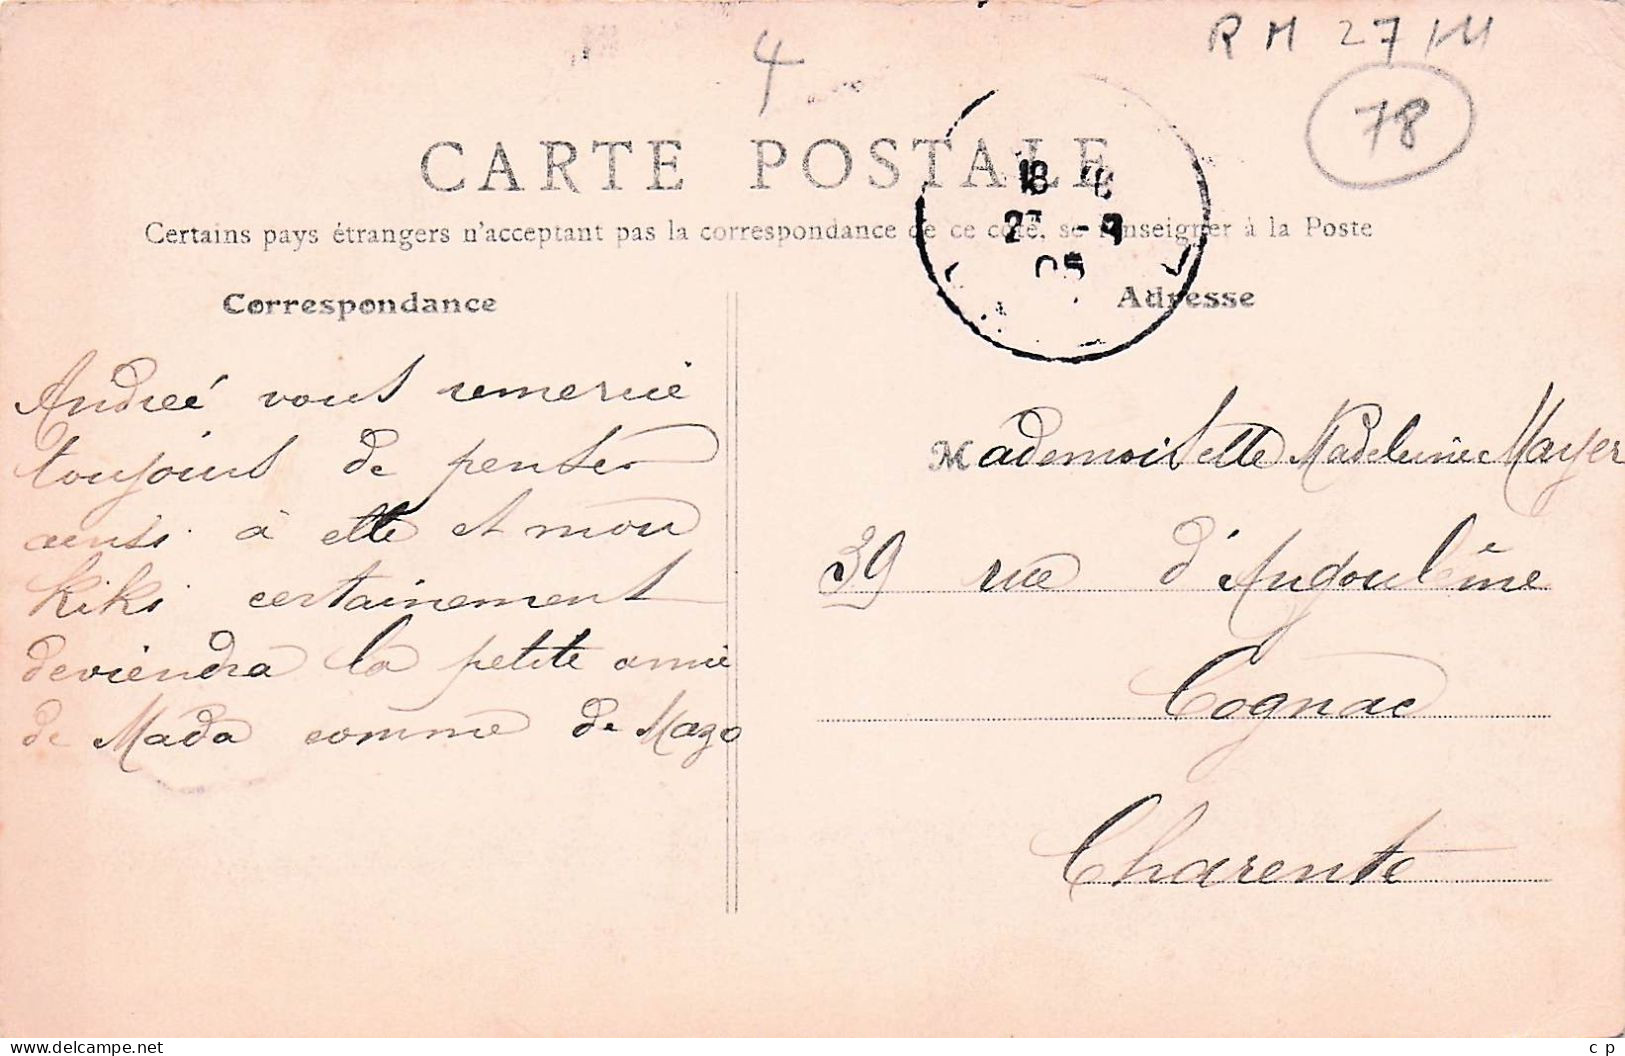 RM 27/14
4
78
CARTE POSTALE
Certains pays étrangers n'acceptant pas la correspondance de ce côté, se renseigner à la Poste
Correspondance
Andreé vous remercie
toujours de penser
ainsi à elle et mon
Kiki certainement
deviendra la petite amie
de Mada comme de Mago
18
27 -
05
Adresse
Mademoiselle Madeleine Mayer
39 rue d'Angoulême
Cognac
Charente
c p